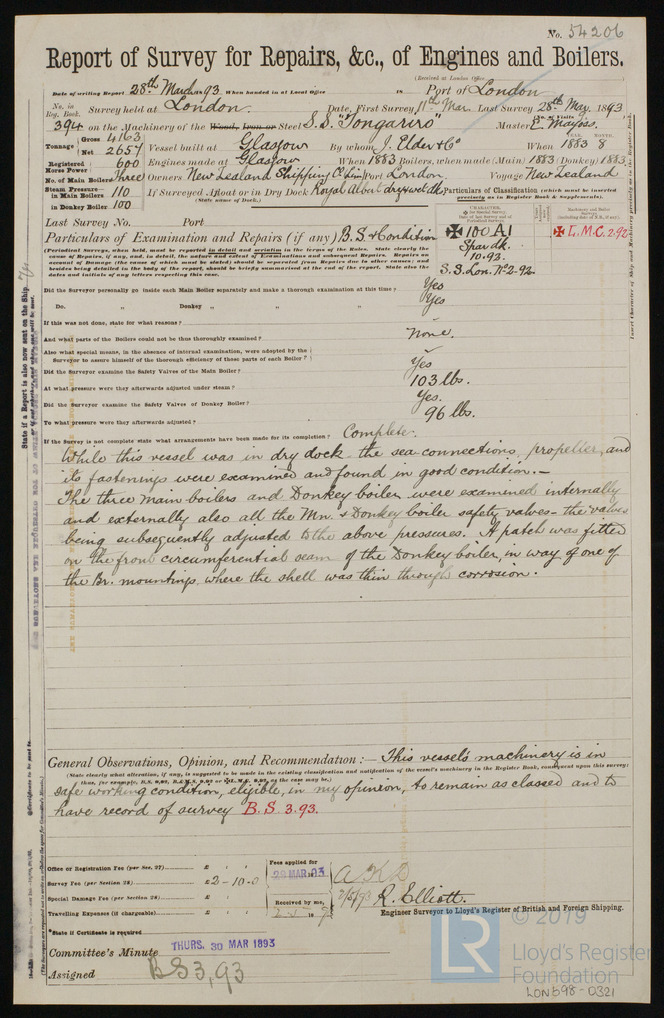 No. 54206
Report of Survey for Repairs, &c., of Engines and Boilers.
(Received at London Office
Date of writing Report 28th March 93 When handed in at Local Office 18 Port of London
No. in Reg. Book. Survey held at London. Date, First Survey 11th Mar. Last Survey 28th Mar. 1893
394 on the Machinery of the Wood, Iron or Steel S.S. "Tongariro" Master E. Mayos.
Tonnage Gross 4163 Net 2657 Vessel built at Glasgow By whom J. Elder & Co When 1883 8
Registered Horse Power 600 Engines made at Glasgow When 1883 Boilers, when made (Main) 1883 (Donkey) 1883
No. of Main Boilers Three Owners New Zealand Shipping Co Lim Port London. Voyage New Zealand
Steam Pressure in Main Boilers 110 If Surveyed Afloat or in Dry Dock Royal Albert dry & wet dk
in Donkey Boiler 100 (State name of Dock.)
Particulars of Classification (which must be inserted precisely as in Register Book & Supplements).
Last Survey No. Port
Particulars of Examination and Repairs (if any) B.S. & Condition
✠ 100 A1
Spar dk.
10.93.
S.S. Lon. No 2-92
✠ L.M.C. 2.92
(Periodical Surveys, when held, must be reported in detail and seriatim in the terms of the Rules. State clearly the
cause of Repairs, if any, and, in detail, the nature and extent of Examinations and subsequent Repairs. Repairs on
account of Damage (the cause of which must be stated) should be separated from Repairs due to other causes; and
besides being detailed in the body of the report, should be briefly summarised at the end of the report. State also the
dates and initials of any letters respecting this case.
Did the Surveyor personally go inside each Main Boiler separately and make a thorough examination at this time? Yes
Do. " Donkey " " " Yes
If this was not done, state for what reasons?
And what parts of the Boilers could not be thus thoroughly examined? None.
Also what special means, in the absence of internal examination, were adopted by the
Surveyor to assure himself of the thorough efficiency of those parts of each Boiler?
Did the Surveyor examine the Safety Valves of the Main Boiler? Yes
At what pressure were they afterwards adjusted under steam? 103 lbs.
Did the Surveyor examine the Safety Valves of Donkey Boiler? Yes.
To what pressure were they afterwards adjusted? 96 lbs.
If the Survey is not complete state what arrangements have been made for its completion? Complete.
While this vessel was in dry dock the sea connections, propeller, and
its fastenings were examined and found in good condition. —
The three main boilers and Donkey boiler were examined internally
and externally also all the Mn. & Donkey boiler safety valves - the valves
being subsequently adjusted to the above pressures. A patch was fitted
on the front circumferential seam of the Donkey boiler, in way of one of
the Br. mountings, where the shell was thin through corrosion.
General Observations, Opinion, and Recommendation :— This vessel's machinery is in
(State clearly what alteration, if any, is suggested to be made in the existing classification and notification of the vessel's machinery in the Register Book, consequent upon this survey;
safe working condition, eligible, in my opinion, to remain as classed and to
have record of survey B.S. 3.93.
Office or Registration Fee (per Sec. 27) £
Survey Fee (per Section 28) £ 2-10-0
Special Damage Fee (per Section 28) £
Travelling Expenses (if chargeable) £
Fees applied for
29 MAR 93
Received by me,
R. Elliott.
Engineer Surveyor to Lloyd's Register of British and Foreign Shipping.
*State if Certificate is required
Committee's Minute THURS. 30 MAR 1893
Assigned BS 3,93
LR
© 2019
Lloyd's Register
Foundation
LON698-0321